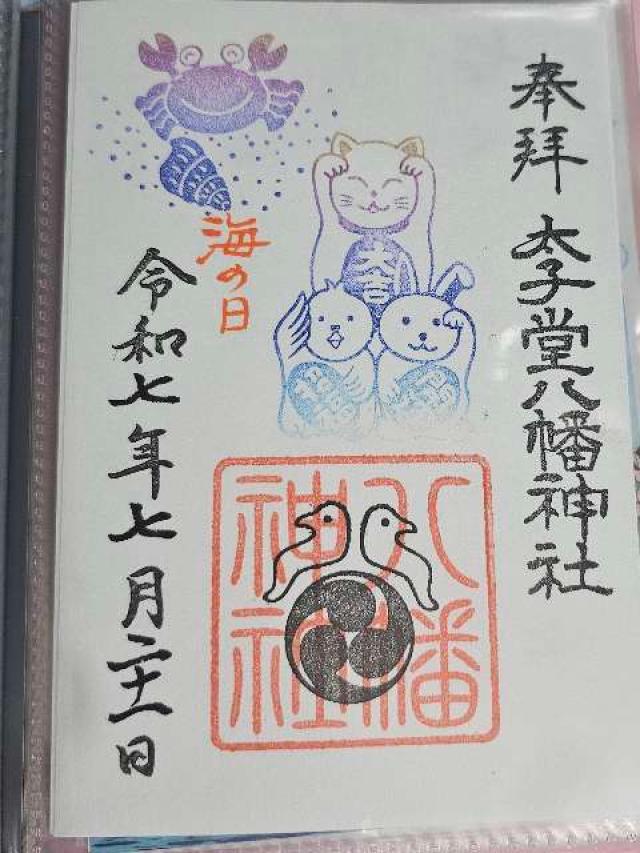 奉拝
太子堂八幡神社
大吉
招福
招福
海の日
八幡
神社
令和七年七月二十一日